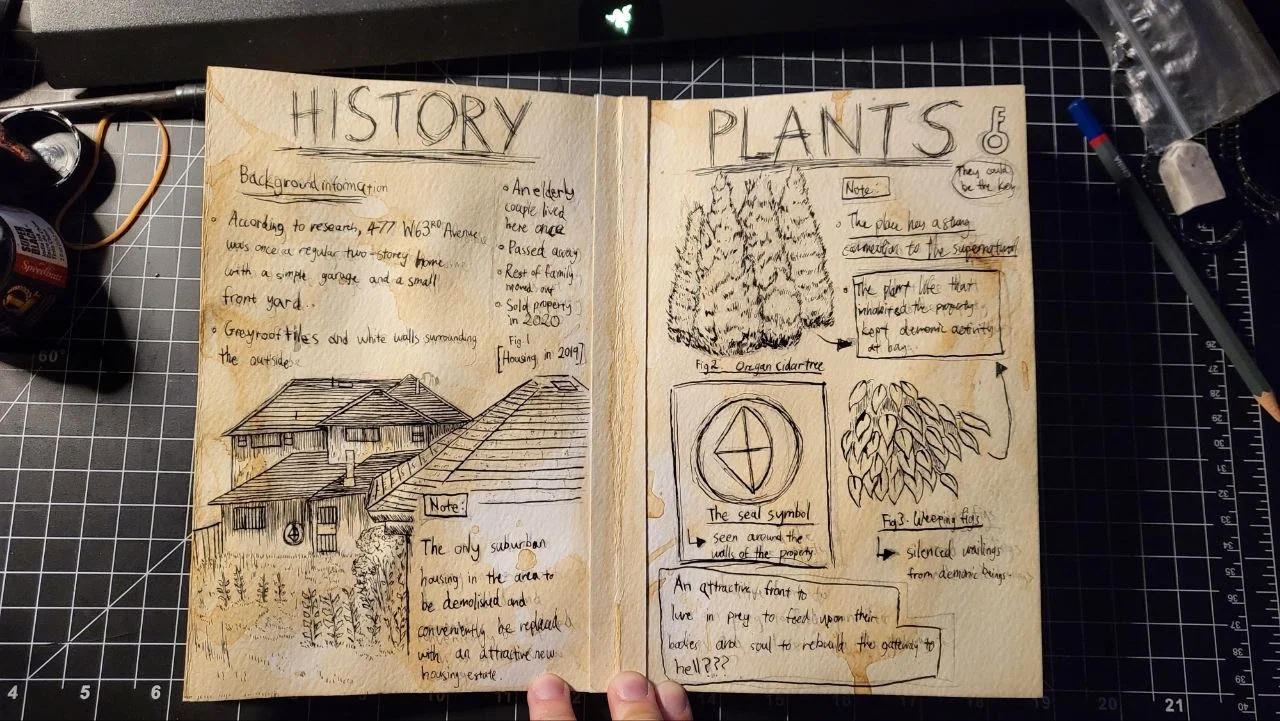 HISTORY
Background information
According to research, 477 W63RD Avenue
was once a regular two-storey home
with a simple garage and a small
front yard..
Grey roof tiles and white walls surrounding
the outside
An elderly
couple lived
here once
Passed away
Rest of family
moved out
Sold property
in 2020
Fig. 1
[Housing in 2019]
Note:
The only suburban
housing in the area to
be demolished and
conveniently be replaced
with an attractive new
housing estate.
PLANTS
They could
be the key
Note:
The place has a strong
connection to the supernatural
The plant life that
inhabited the property
kept demonic activity
at bay.
Fig 2. Oregan Cidar tree
The seal symbol
seen around the
walls of the property
Fig 3. Weeping figs
silenced wailings
from demonic beings
An attractive front to
lure in prey to feed upon their
bodies and soul to rebuild the gateway to
hell???
60°
4 5 6
14 17 18 19 20 21
26
27
28
29
30
31
32
33
34
35
36
37
38
39